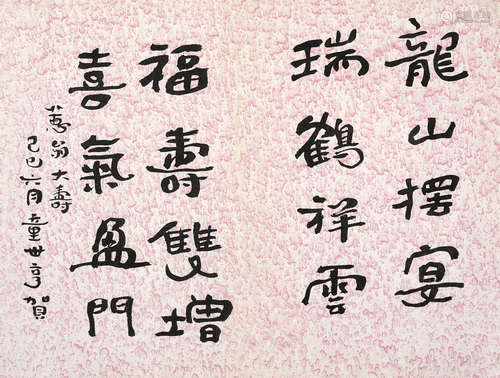 龍山擺宴
瑞鶴祥雲
福壽雙增
喜氣盈門
蔥翁大壽
己巳六月童世亨賀